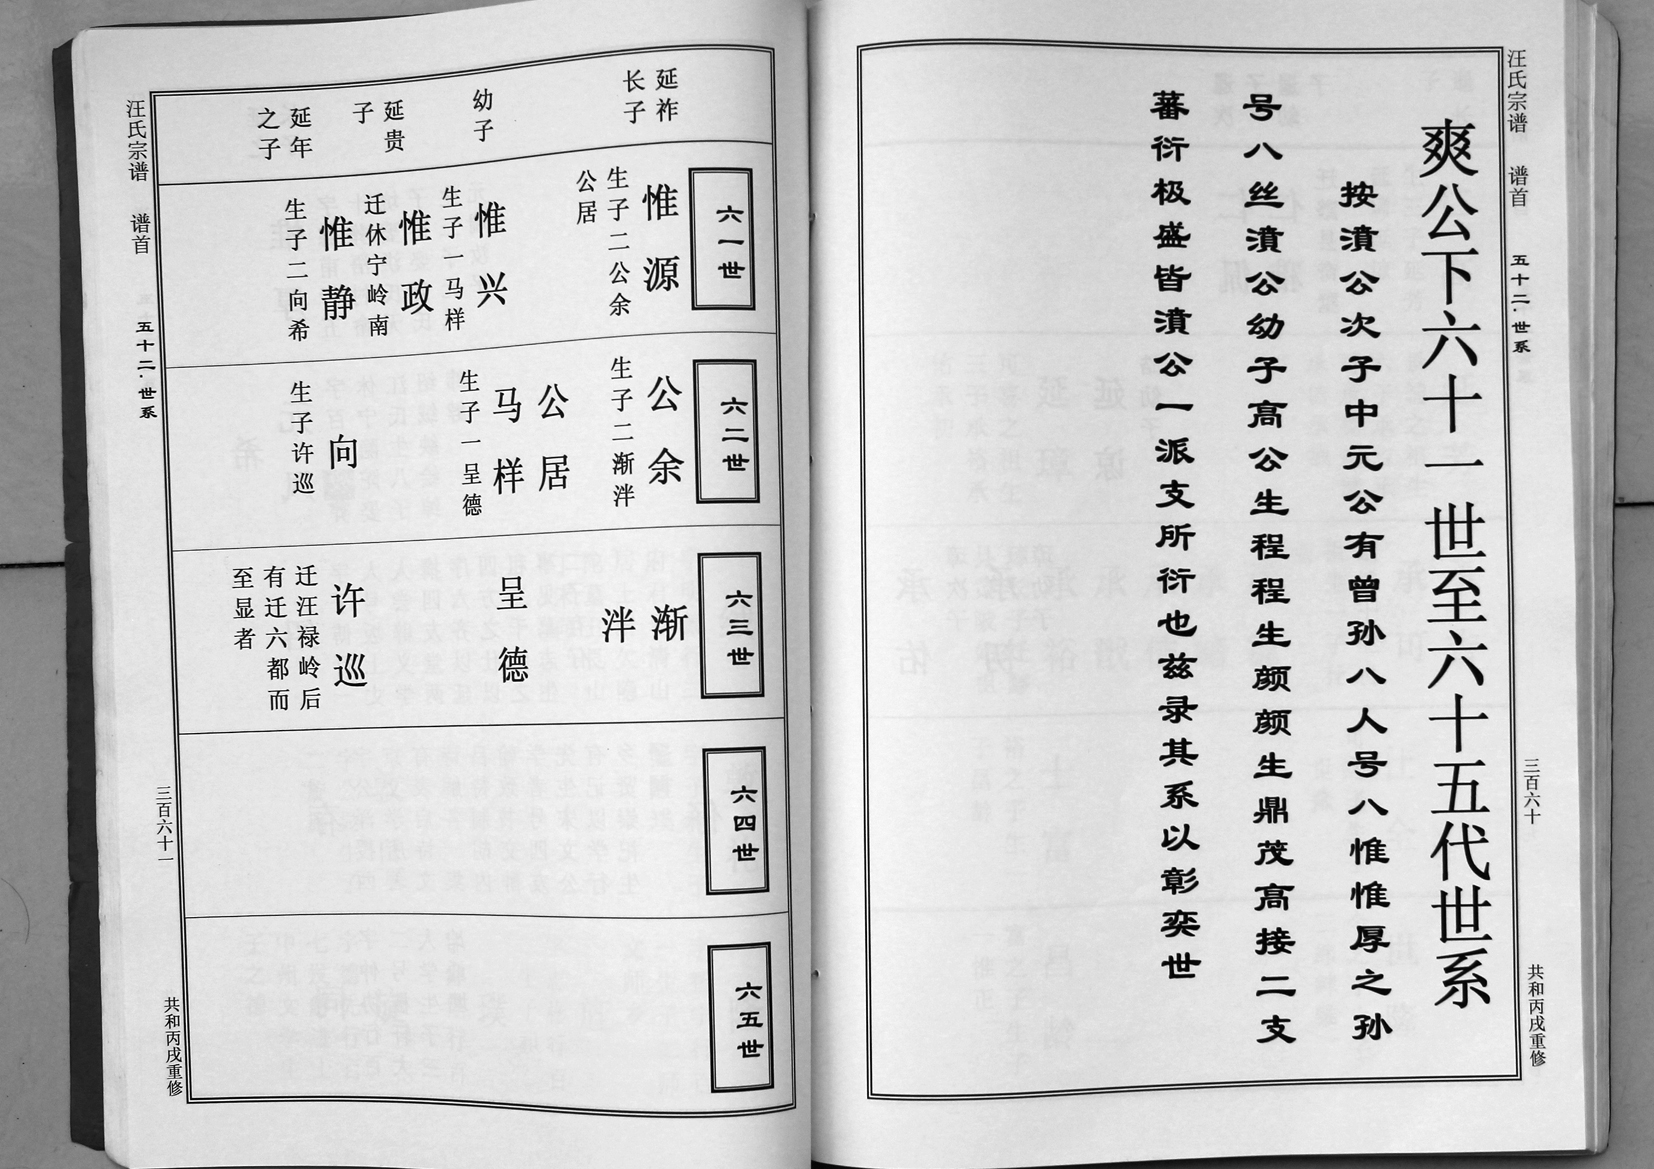 汪氏宗谱 谱首 五十二·世系 三百六十 共和丙戌重修
爽公下六十一世至六十五代世系
按濆公次子中元公有曾孙八人号八惟惟厚之孙
号八丝濆公幼子高公生程程生颜颜生鼎茂高接二支
蕃衍极盛皆濆公一派支所衍也兹录其系以彰奕世
六一世
延祚
长子
惟源
生子二公余
公居
幼子
惟兴
生子一马样
延贵
子
惟政
迁休宁岭南
延年
之子
惟静
生子二向希
六二世
公余
生子二渐泮
公居
马样
生子一呈德
向
生子许巡
六三世
渐
泮
呈德
许巡
迁汪禄岭后
有迁六都而
至显者
六四世
六五世
汪氏宗谱 谱首 五十二·世系 三百六十一 共和丙戌重修